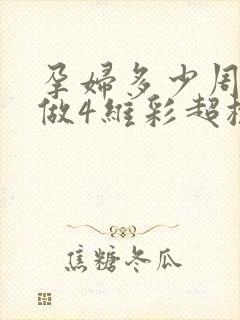 孕婦多少周
做4維彩超
焦糖冬瓜